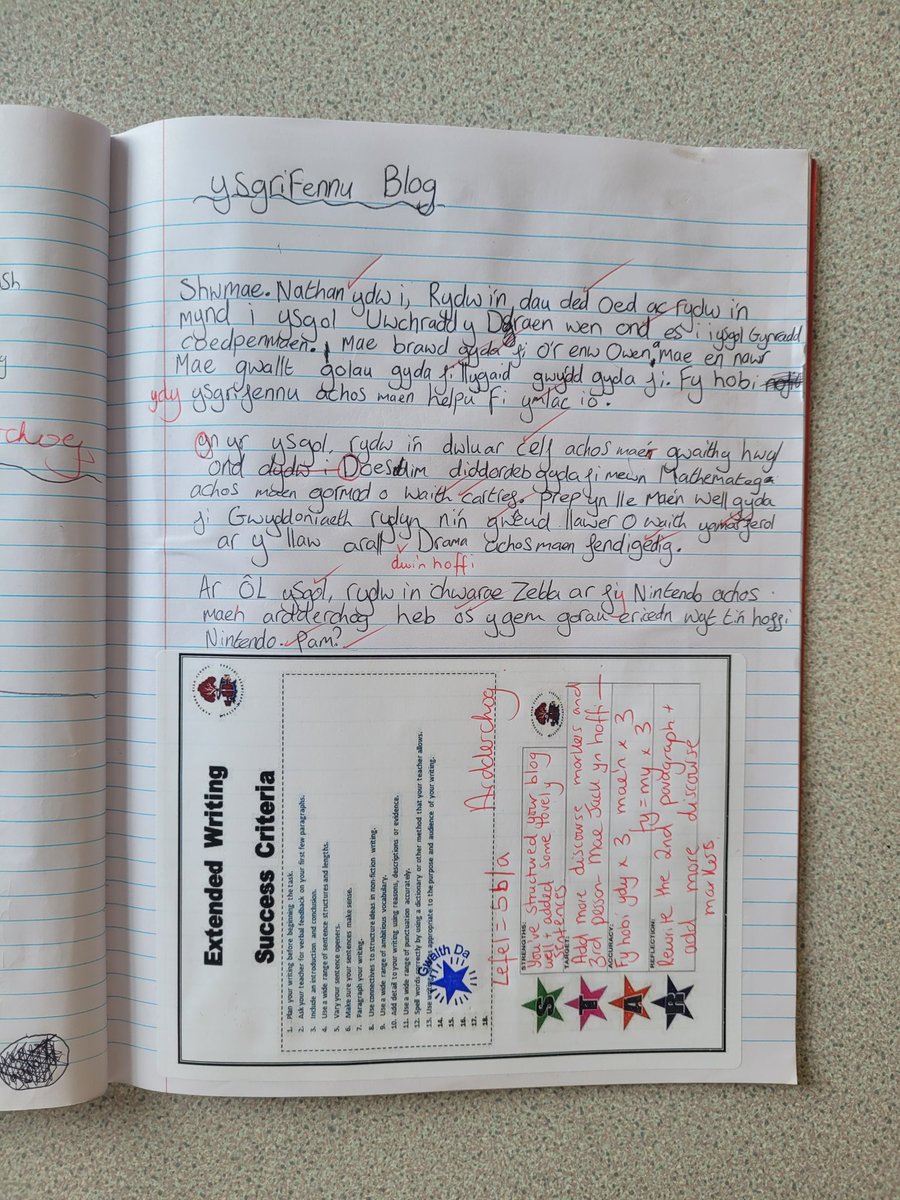 ysgrifennu Blog
Shwmae. Nathan ydw i, Rydw i'n dau ded Oed ac rydw i'n
mynd i ysgol Uwchradd y Ddraen wen ond es i i ysgol Gynradd
coedpenmaen. Mae brawd gyda fi o'r enw Owen, mae en nawr
Mae gwallt golau gyda fi llygaid gwydd gyda fi. Fy hobi
ydy ysgrifennu achos maen helpu fi ymlacio.
yn yr ysgol, rydw i'n dwlu ar celf achos maen gwaith hwyl
ond dydw i Does dim diddordeb gyda fi mewn Mathemateg
achos maen gormod o waith cartref. Prep yn lle Maen well gyda
fi Gwyddoniaeth rydyn ni'n gweud llawer o waith ymarferol
ar y llaw arall Drama achos maen fendigedig.
dwi'n hoffi
Ar ÔL ysgol, rydw i'n chwarae Zelda ar fy Nintendo achos
maen ardderchog heb os y gem gorau erioedn wyt ti'n hoffi
Nintendo. Pam?
Extended Writing
Success Criteria
1. Plan your writing before beginning the task.
2. Ask your teacher for verbal feedback on your first few paragraphs.
3. Include an introduction and conclusion.
4. Use a wide range of sentence structures and lengths.
5. Vary your sentence openers.
6. Make sure your sentences make sense.
7. Paragraph your writing.
8. Use connectives to structure ideas in non-fiction writing.
9. Use a wide range of ambitious vocabulary.
10. Add detail to your writing using reasons, descriptions or evidence.
11. Use a wide range of punctuation accurately.
12. Spell words correctly by using a dictionary or other method that your teacher allows.
13. Use writing appropriate to the purpose and audience of your writing.
14.
15.
16.
17.
18.
Gwaith Da
Lefel = 5b/a
Ardderchog
STRENGTHS:
You've structured your blog
well + added some lovely
sentences
TARGET:
Add more discourse markers and
3rd person Mae Jack yn hoffi
ACCURACY:
Fy hobi ydy x 3 mae'n x 3
fy = my x 3
REFLECTION:
Rewrite the 2nd paragraph +
add more discourse
markers
S
T
A
R